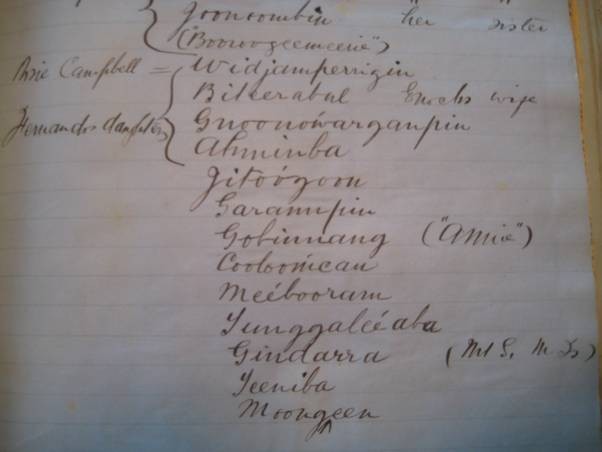 Gooncombin her sister
("Boorogeemeenie")
Rosie Campbell = Widjamperrigin
Bilkerabul Enochs wife
Fernandos daughters Gnoonówarganpin
Ahminba
Jitoógoon
Garannpin
Gobinnang ("Amie")
Cooloomcan
Meébooram
Yunggaleéaba
Gindarra
Yeeniba
Moongeen